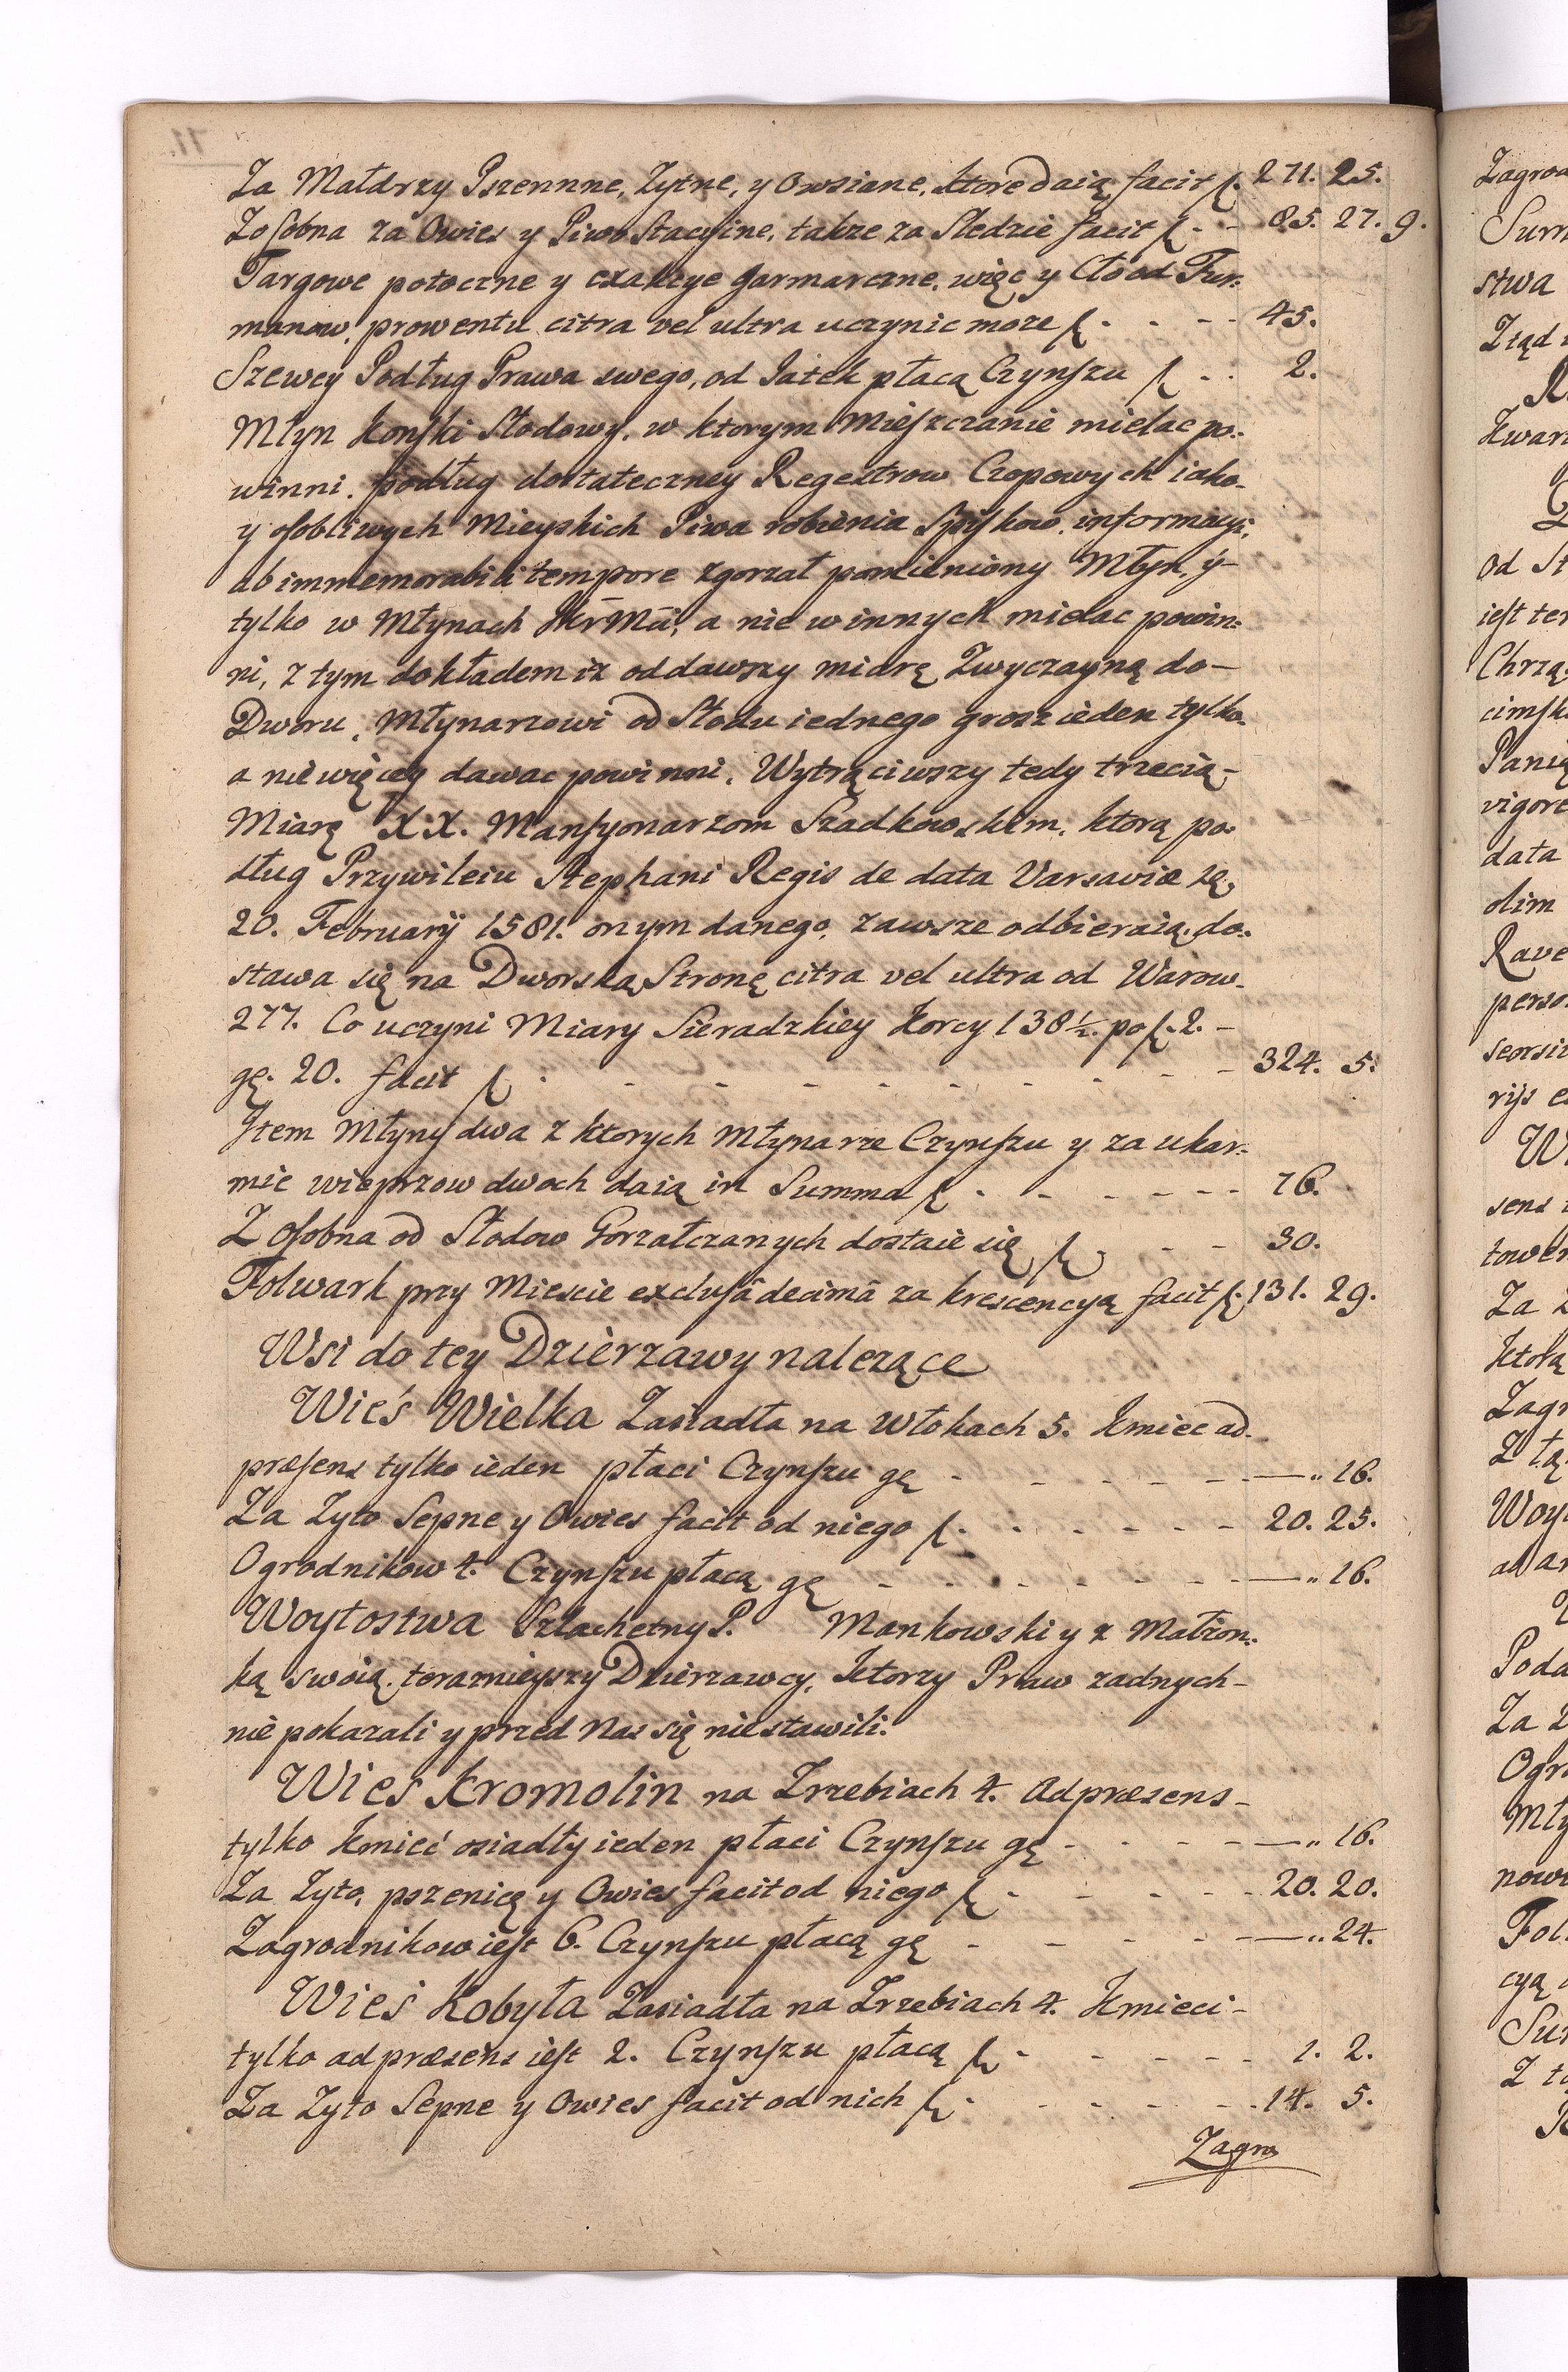 Za Małdrzy Pszennne, Zytne, y Owsiane, ktore daią facit f. 271. 25.
Zosobna za Owies y Piwo Stacyine, także za Sledzie facit f. - - 85. 27. 9.
Targowe potoczne y exakcye Jarmarczne, więc y Cło od Fur:
manow, prowentu citra vel ultra uczynic może f. - - - - 45.
Szewcy Podług Prawa swego, od Jatek płacą Czynszu f. - - 2.
Młyn Konski Słodowy, w ktorym Mieszczanie mielac po:
winni, podług dostateczney Regestrow Czopowych iako-
y osobliwych Mieyskich Piwa robienia Spiskow, informacyi,
ab immemorabili tempore zgorzał pomieniony Młyn, y-
tylko w Młynach JKr Mci, a nie w innych mielac powin:
ni, z tym dokładem iz oddawszy miarę Zwyczayną do-
Dworu, Młynarzowi od Słodu iednego grosz ieden tylko
a nie więcey dawac powinni. Wytrąciwszy tedy trzecią-
Miarę X.X. Mansyonarzom Szadkowskim, ktorą po:
dług Przywileiu Stephani Regis de data Varsaviæ
20. Februarÿ 1581. onym danego, zawsze odbieraią, do:
stawa się na Dworską Stronę citra vel ultra od Warow-
277. Co uczyni Miary Sieradzkiey Korcy 138½. po f. 2.-
gę. 20. facit f. - - - - - - - - - 324. 5.
Jtem Młyny dwa z ktorych Młynarze Czynszu y za ukar:
mie wieprzow dwoch daią in Summa f. - - - - - - 76.
Z osobna od Słodow Gorzałczanych dostaie się f. - - 30.
Folwark przy Miescie exclusâ decimâ za krescencyą facit f. 131. 29.
Wsi do tey Dzierzawy nalezące
Wieś Wielka Zasiadła na Włokach 5. Kmiec ad
præsens tylko ieden płaci Czynszu gę - - - - - —„ 16.
Za Zyto Sepne y Owies facit od niego f. - - - - - 20. 25.
Ogrodnikow 4. Czynszu płacą gę - - - - - - —„ 16.
Woytostwa Szlachetny P. Mankowski y z Małzon:
ką swoią teraznieyszy Dzierzawcy, Ktorzy Praw zadnych-
nie pokazali y przed Nas się nie stawili.
Wies Kromolin na Zrzebiach 4. Ad præsens-
tylko Kmieć osiadły ieden płaci Czynszu gę - - - - —„ 16.
Za Zyto, pszenicę y Owies facit od niego f. - - - - - 20. 20.
Zagrodnikow iest 6. Czynszu płacą gę - - - - - —„ 24.
Wieś Kobyła Zasiadła na Zrzebiach 4. Kmieci-
tylko ad præsens iest 2. Czynszu płacą f. - - - - - 1. 2.
Za Zyto Sepne y Owies facit od nich f. - - - - - 14. 5.
Zagro